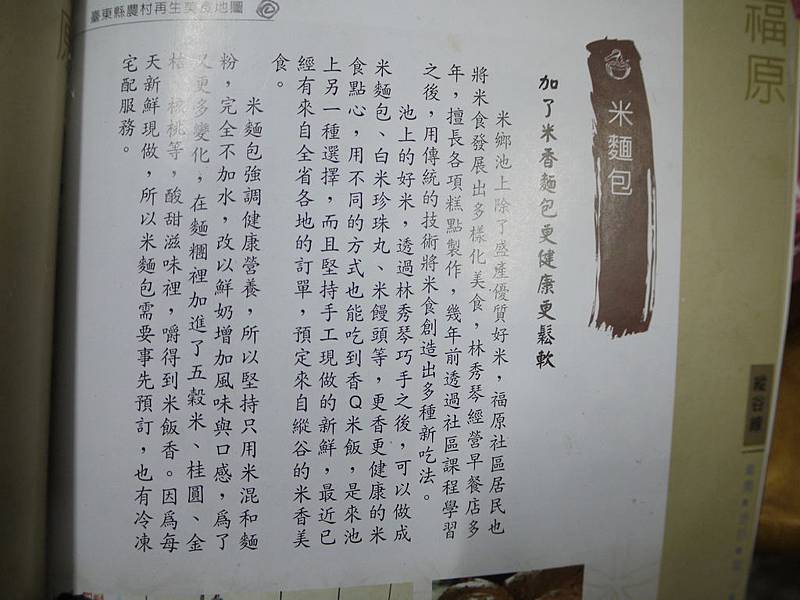 福原
縱谷線
米麵包
加了米香麵包更健康更鬆軟
米鄉池上除了盛產優質好米，福原社區居民也
將米食發展出多樣化美食，林秀琴經營早餐店多
年，擅長各項糕點製作，幾年前透過社區課程學習
之後，用傳統的技術將米食創造出多種新吃法。
池上的好米，透過林秀琴巧手之後，可以做成
米麵包、白米珍珠丸、米饅頭等，更香更健康的米
食點心，用不同的方式也能吃到香Q米飯，是來池
上另一種選擇，而且堅持手工現做的新鮮，最近已
經有來自全省各地的訂單，預定來自縱谷的米香美
食。
米麵包強調健康營養，所以堅持只用米混和麵
粉，完全不加水，改以鮮奶增加風味與口感，爲了
又更多變化，在麵糰裡加進了五穀米、桂圓、金
桔、核桃等，酸甜滋味裡，嚼得到米飯香。因爲每
天新鮮現做，所以米麵包需要事先預訂，也有冷凍
宅配服務。
臺東縣農村再生美食地圖